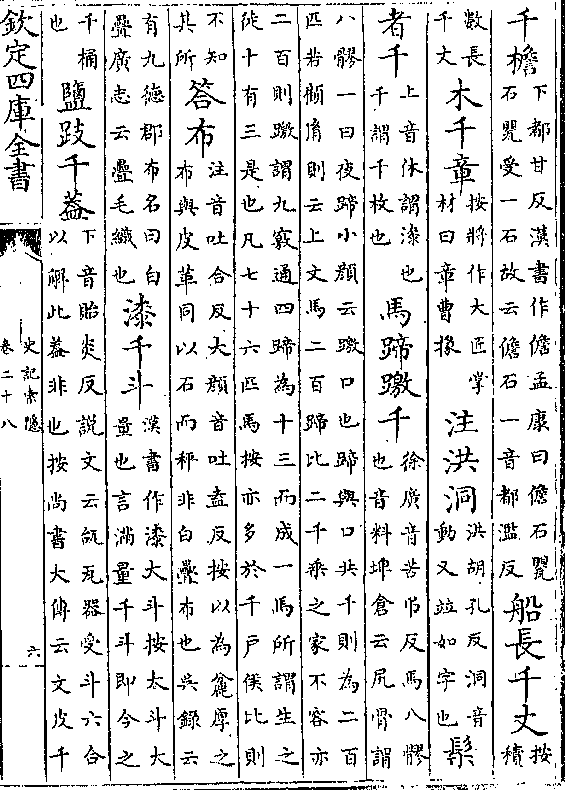 千檐下都甘反漢書作儋孟康曰儋石甖石甖受一石故云儋石一音都濫反船長千丈按積
數長千丈木千章按將作大匠掌材曰章曹掾注洪洞洪胡孔反洞音動又竝如字也髤
者千上音休謂漆也千謂千枚也馬蹄躈千徐廣音苦弔反馬八髎也音料埤倉云尻骨謂
八髎一曰夜蹄小顏云躈口也蹄與口共千則為二百匹若顧胤則云上文馬二百蹄比二千乘之家不容亦
二百則躈謂九竅通四蹄為十三而成一馬所謂生之徒十有三是也凡七十六匹馬按亦多於千户侯比則
不知其所荅布注音吐合反大顏音吐盍反按以為麄厚之布與皮革同以石而秤非白疊布也吳録云
有九德郡布名曰白疊廣志云疊毛織也漆千斗漢書作漆大斗按太斗大量也言滿量千斗即今之
千桶也鹽豉千葢下音貽炎反説文云瓵瓦器受斗六合以解此葢非也按尚書大傳云文皮千
欽定四庫全書
史記索隱
卷二十八
六